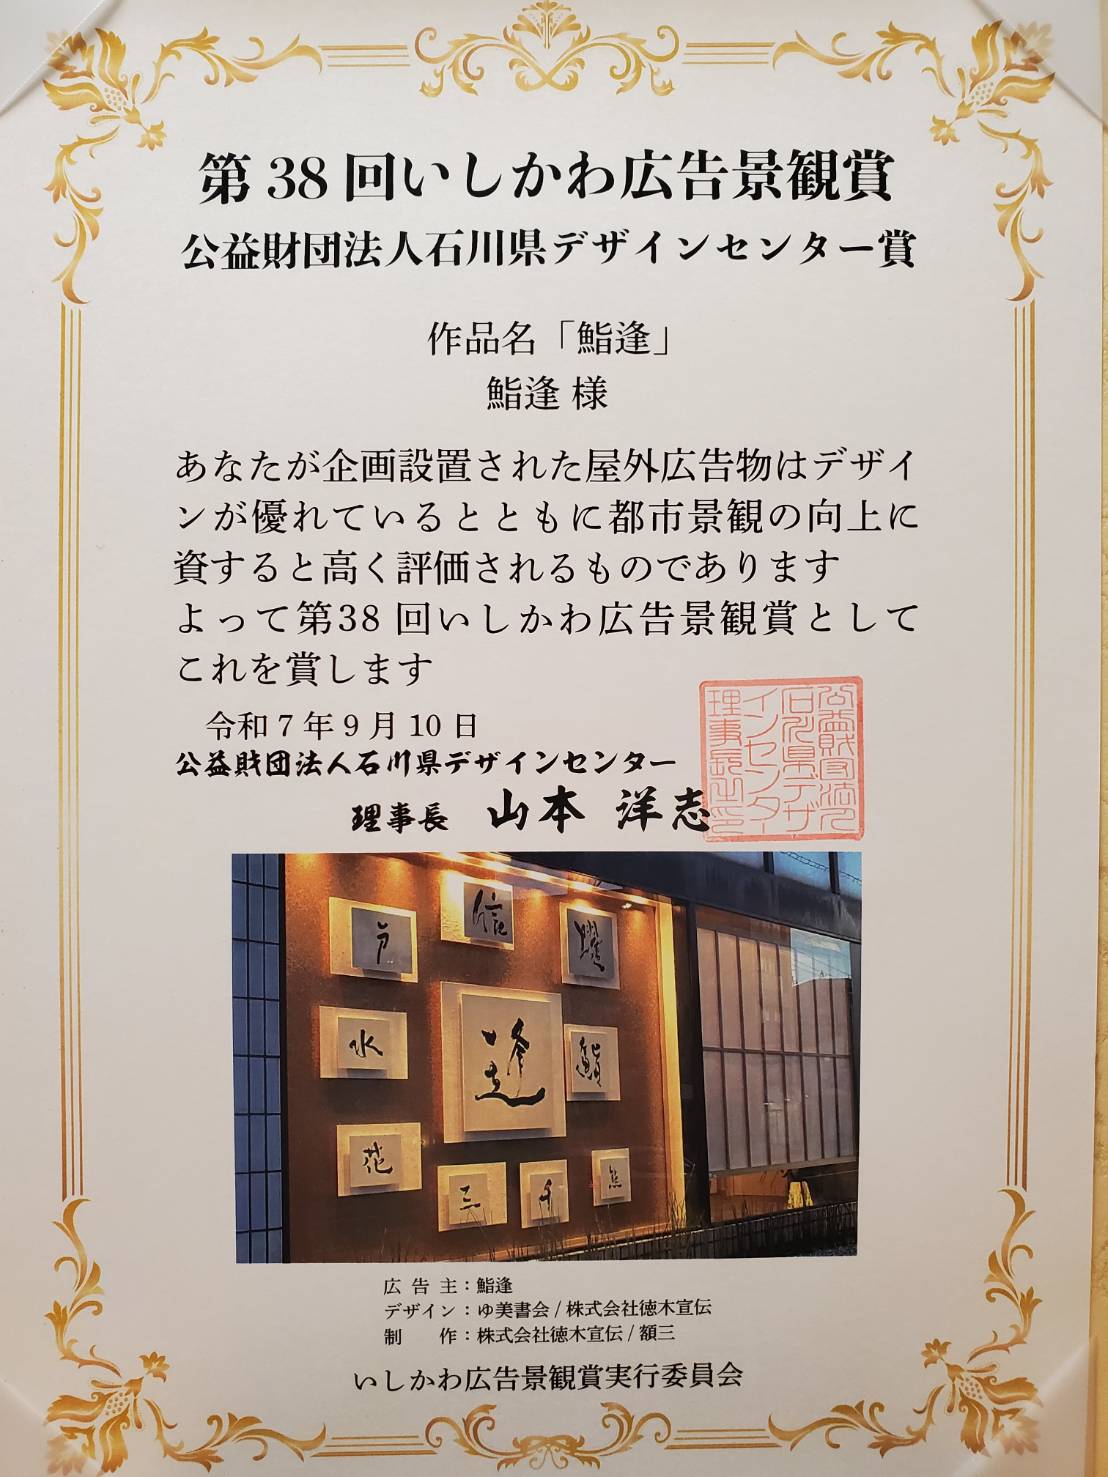 第38回いしかわ広告景観賞
公益財団法人石川県デザインセンター賞
作品名「鮨逢」
鮨逢 様
あなたが企画設置された屋外広告物はデザイ
ンが優れているとともに都市景観の向上に
資すると高く評価されるものであります
よって第38回いしかわ広告景観賞として
これを賞します
令和7年9月10日
公益財団法人石川県デザインセンター
理事長 山本 洋志
公益財団法人
石川県デザ
インセンター
理事長之印
戸
信
躍
水
逢
鮨
花
三
千
広告主：鮨逢
デザイン：ゆ美書会/株式会社徳木宣伝
制作：株式会社徳木宣伝/額三
いしかわ広告景観賞実行委員会